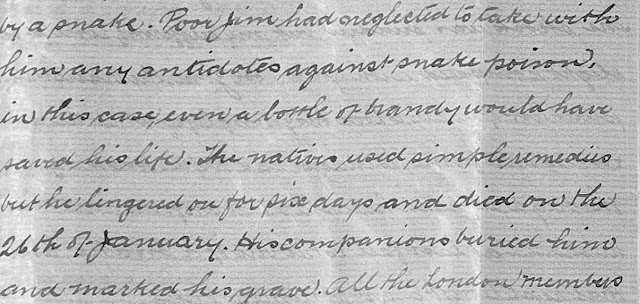 by a snake. Poor Jim had neglected to take with
him any antidotes against snake poison,
in this case, even a bottle of brandy would have
saved his life. The natives used simple remedies
but he lingered on for six days and died on the
26th of January. His companions buried him
and marked his grave. All the London members